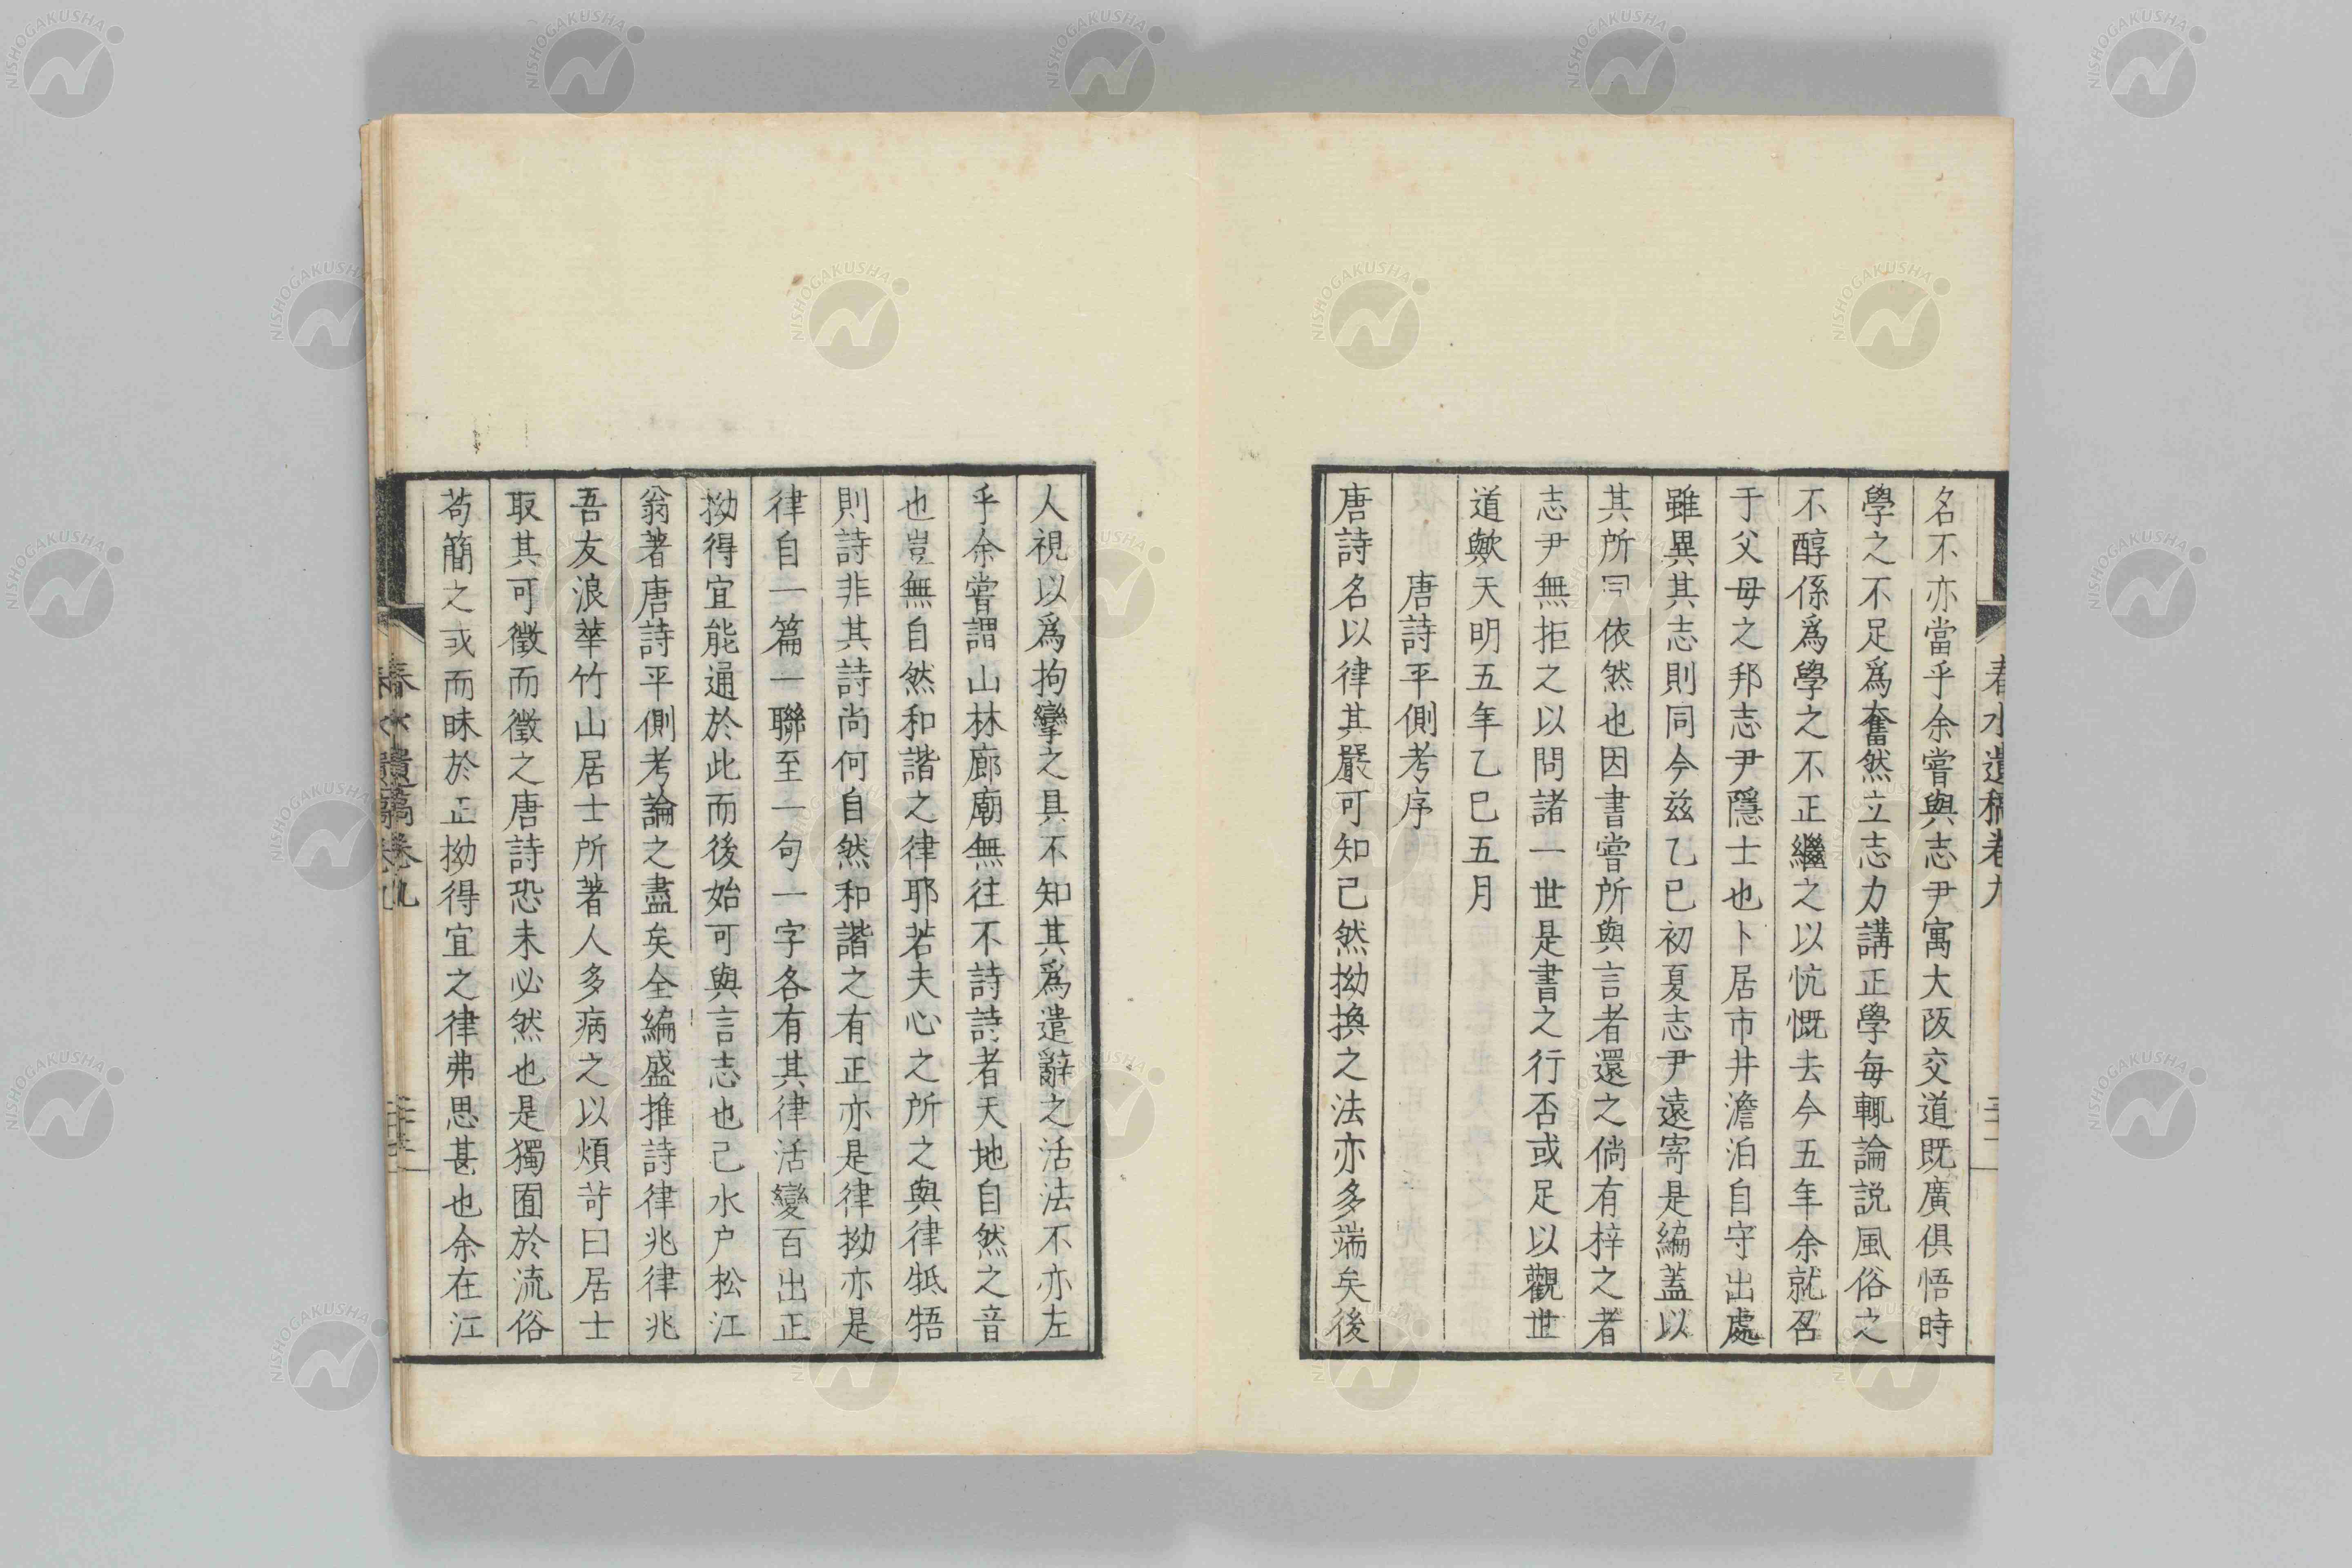 名不亦當乎余嘗與志尹寓大阪交道既廣俱悟時
學之不足爲奮然立志力講正學每輒論説風俗之
不醇係爲學之不正繼之以忼慨去今五年余就召
于父母之邦志尹隱士也卜居市井澹泊自守出處
雖異其志則同今玆乙巳初夏志尹遠寄是編蓋以
其所同依然也因書嘗所與言者還之倘有梓之者
志尹無拒之以問諸一世是書之行否或足以觀世
道歟天明五年乙巳五月
唐詩平側考序
唐詩名以律其嚴可知已然拗換之法亦多端矣後
人視以爲拘攣之具不知其爲遣辭之活法不亦左
乎余嘗謂山林廊廟無往不詩詩者天地自然之音
也豈無自然和諧之律耶若夫心之所之與律牴牾
則詩非其詩尚何自然和諧之有正亦是律拗亦是
律自一篇一聯至一句一字各有其律活變百出正
拗得宜能通於此而後始可與言志也已水户松江
翁著唐詩平側考論之盡矣全編盛推詩律兆律兆
吾友浪華竹山居士所著人多病之以煩苛曰居士
取其可徵而徵之唐詩恐未必然也是獨囿於流俗
苟簡之或而昧於正拗得宜之律弗思甚也余在江
春水遺稿卷九